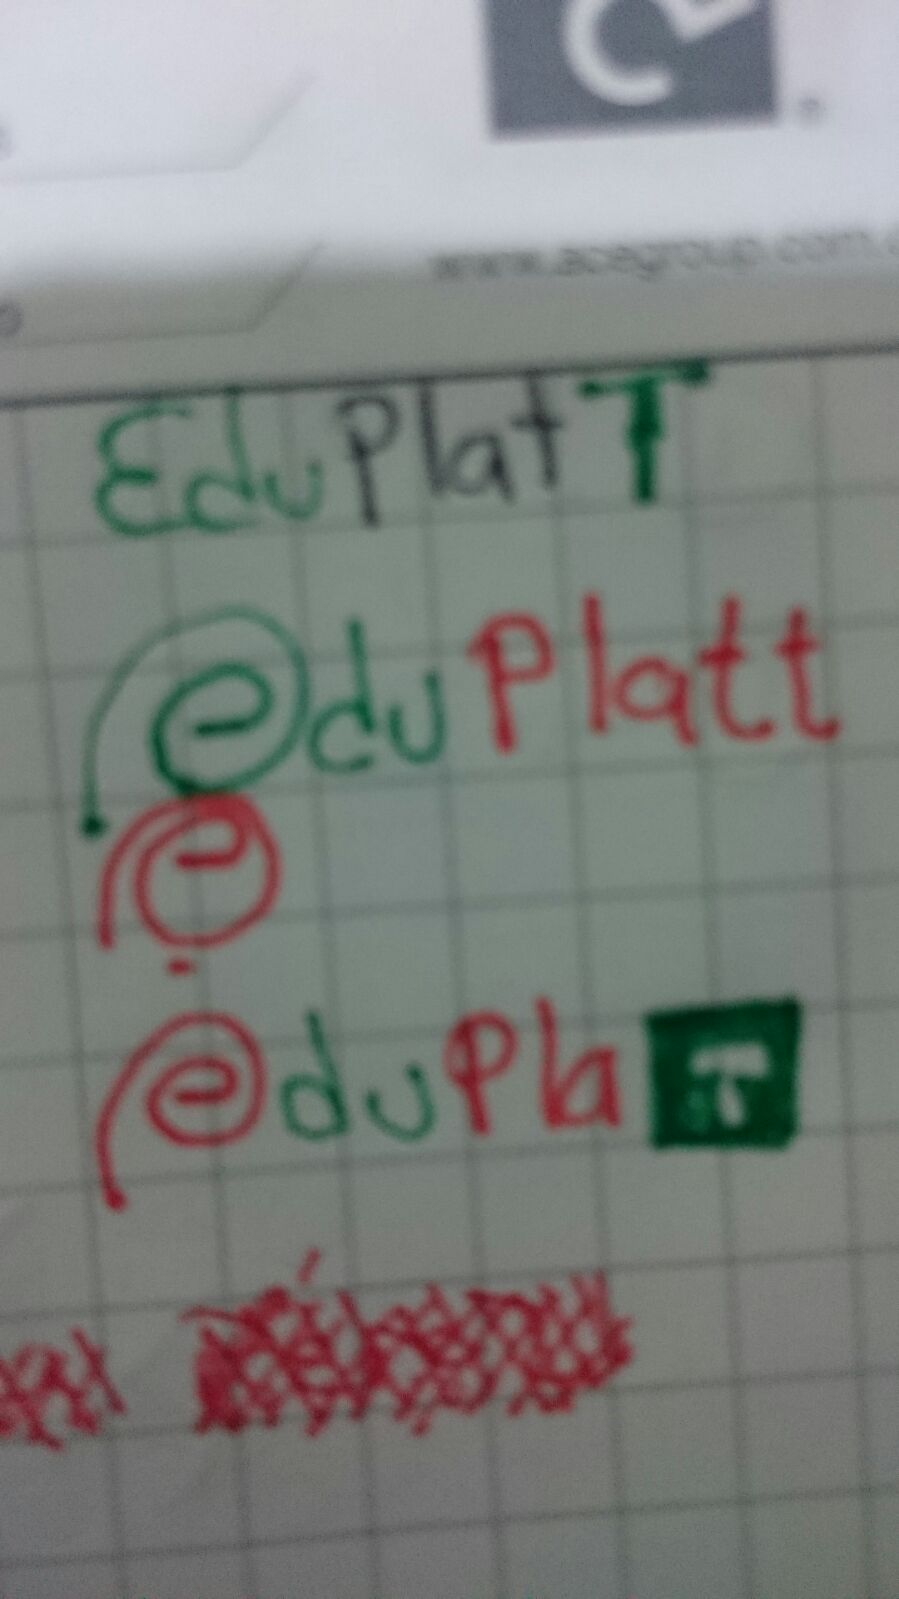 www.acegroup.com.
EduPlatT
eduPlatt
e
eduPlaT